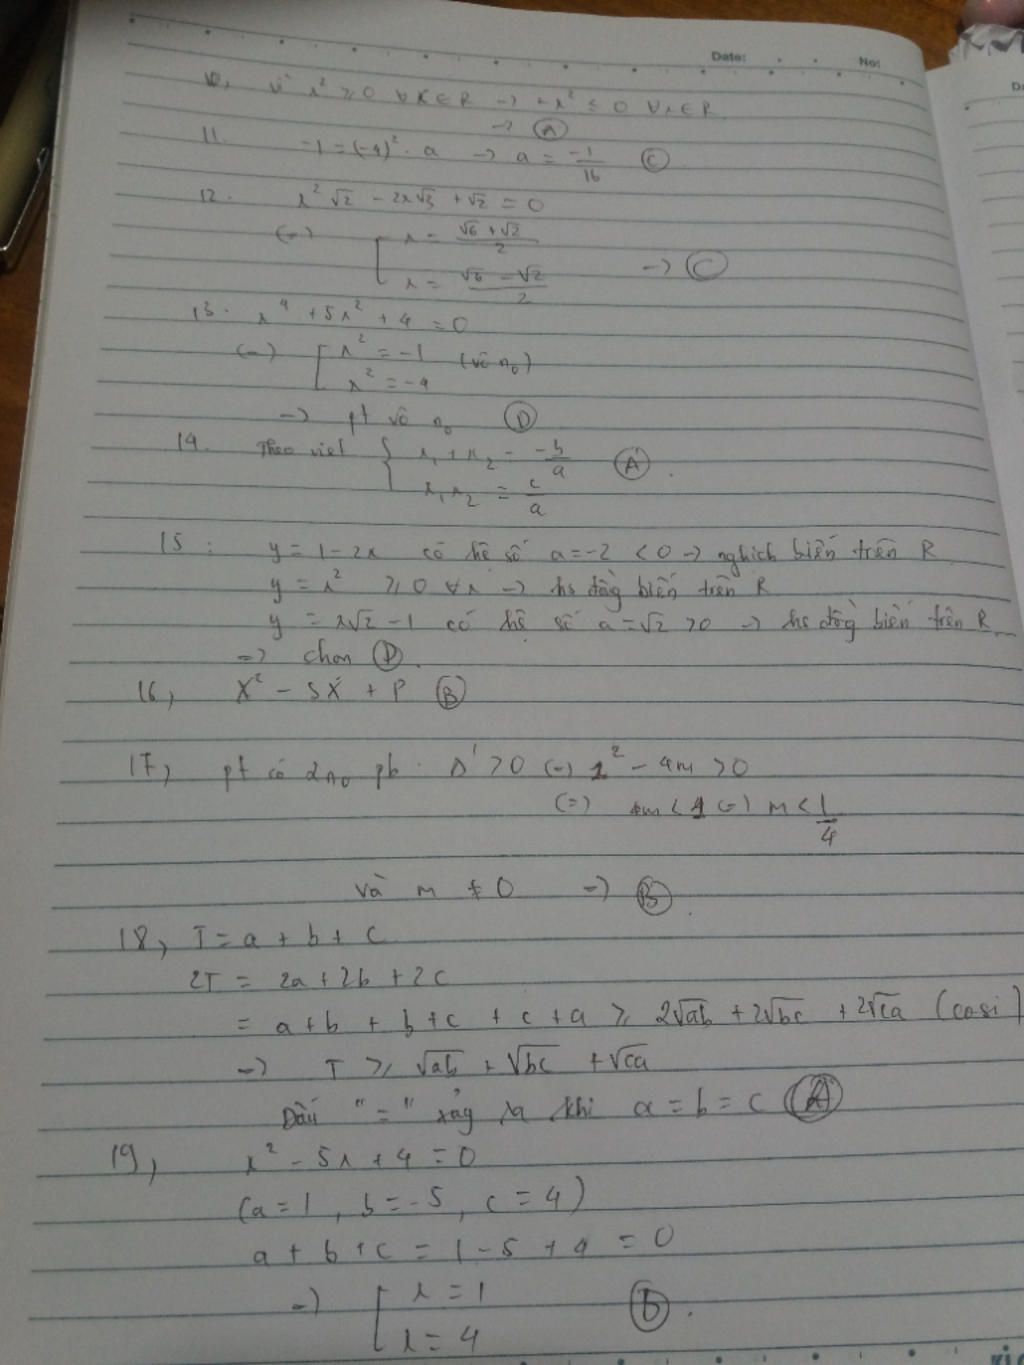 Date: No:
10, vì x² ≥ 0 ∀x∈R → -x² ≤ 0 ∀x∈R
→ Ⓐ
11. -1 = (-4)² . a → a = -1/16 Ⓒ
12. x²√2 - 2x√3 + √2 = 0
(=) [ x = (√6 + √2)/2
x = (√6 - √2)/2 → Ⓒ
13. x⁴ + 5x² + 4 = 0
(=) [ x² = -1 (vô n₀)
x² = -4
→ pt vô n₀ Ⓓ
14. Theo viet { x₁ + x₂ = -b/a Ⓐ.
x₁x₂ = c/a
15: y = 1 - 2x có hệ số a = -2 < 0 → nghịch biến trên R
y = x² ≥ 0 ∀x → hs đồng biến trên R
y = x√2 - 1 có hệ số a = √2 > 0 → hs đồng biến trên R
=> chọn Ⓓ.
16, X² - SX + P Ⓑ
17, pt có 2n₀ pb. Δ' > 0 (=) 1² - 4m > 0
(=) 4m < 1 (=) m < 1/4
và m ≠ 0 → Ⓑ.
18, T = a + b + c
2T = 2a + 2b + 2c
= a + b + b + c + c + a ≥ 2√ab + 2√bc + 2√ca (cosi)
=> T ≥ √ab + √bc + √ca
Dấu "=" xảy ra khi a = b = c Ⓐ
19, x² - 5x + 4 = 0
(a = 1, b = -5, c = 4)
a + b + c = 1 - 5 + 4 = 0
=> [ x = 1
x = 4 Ⓓ.